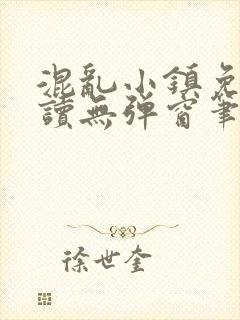 混亂小鎮免
讀無彈窗筆
徐世奎